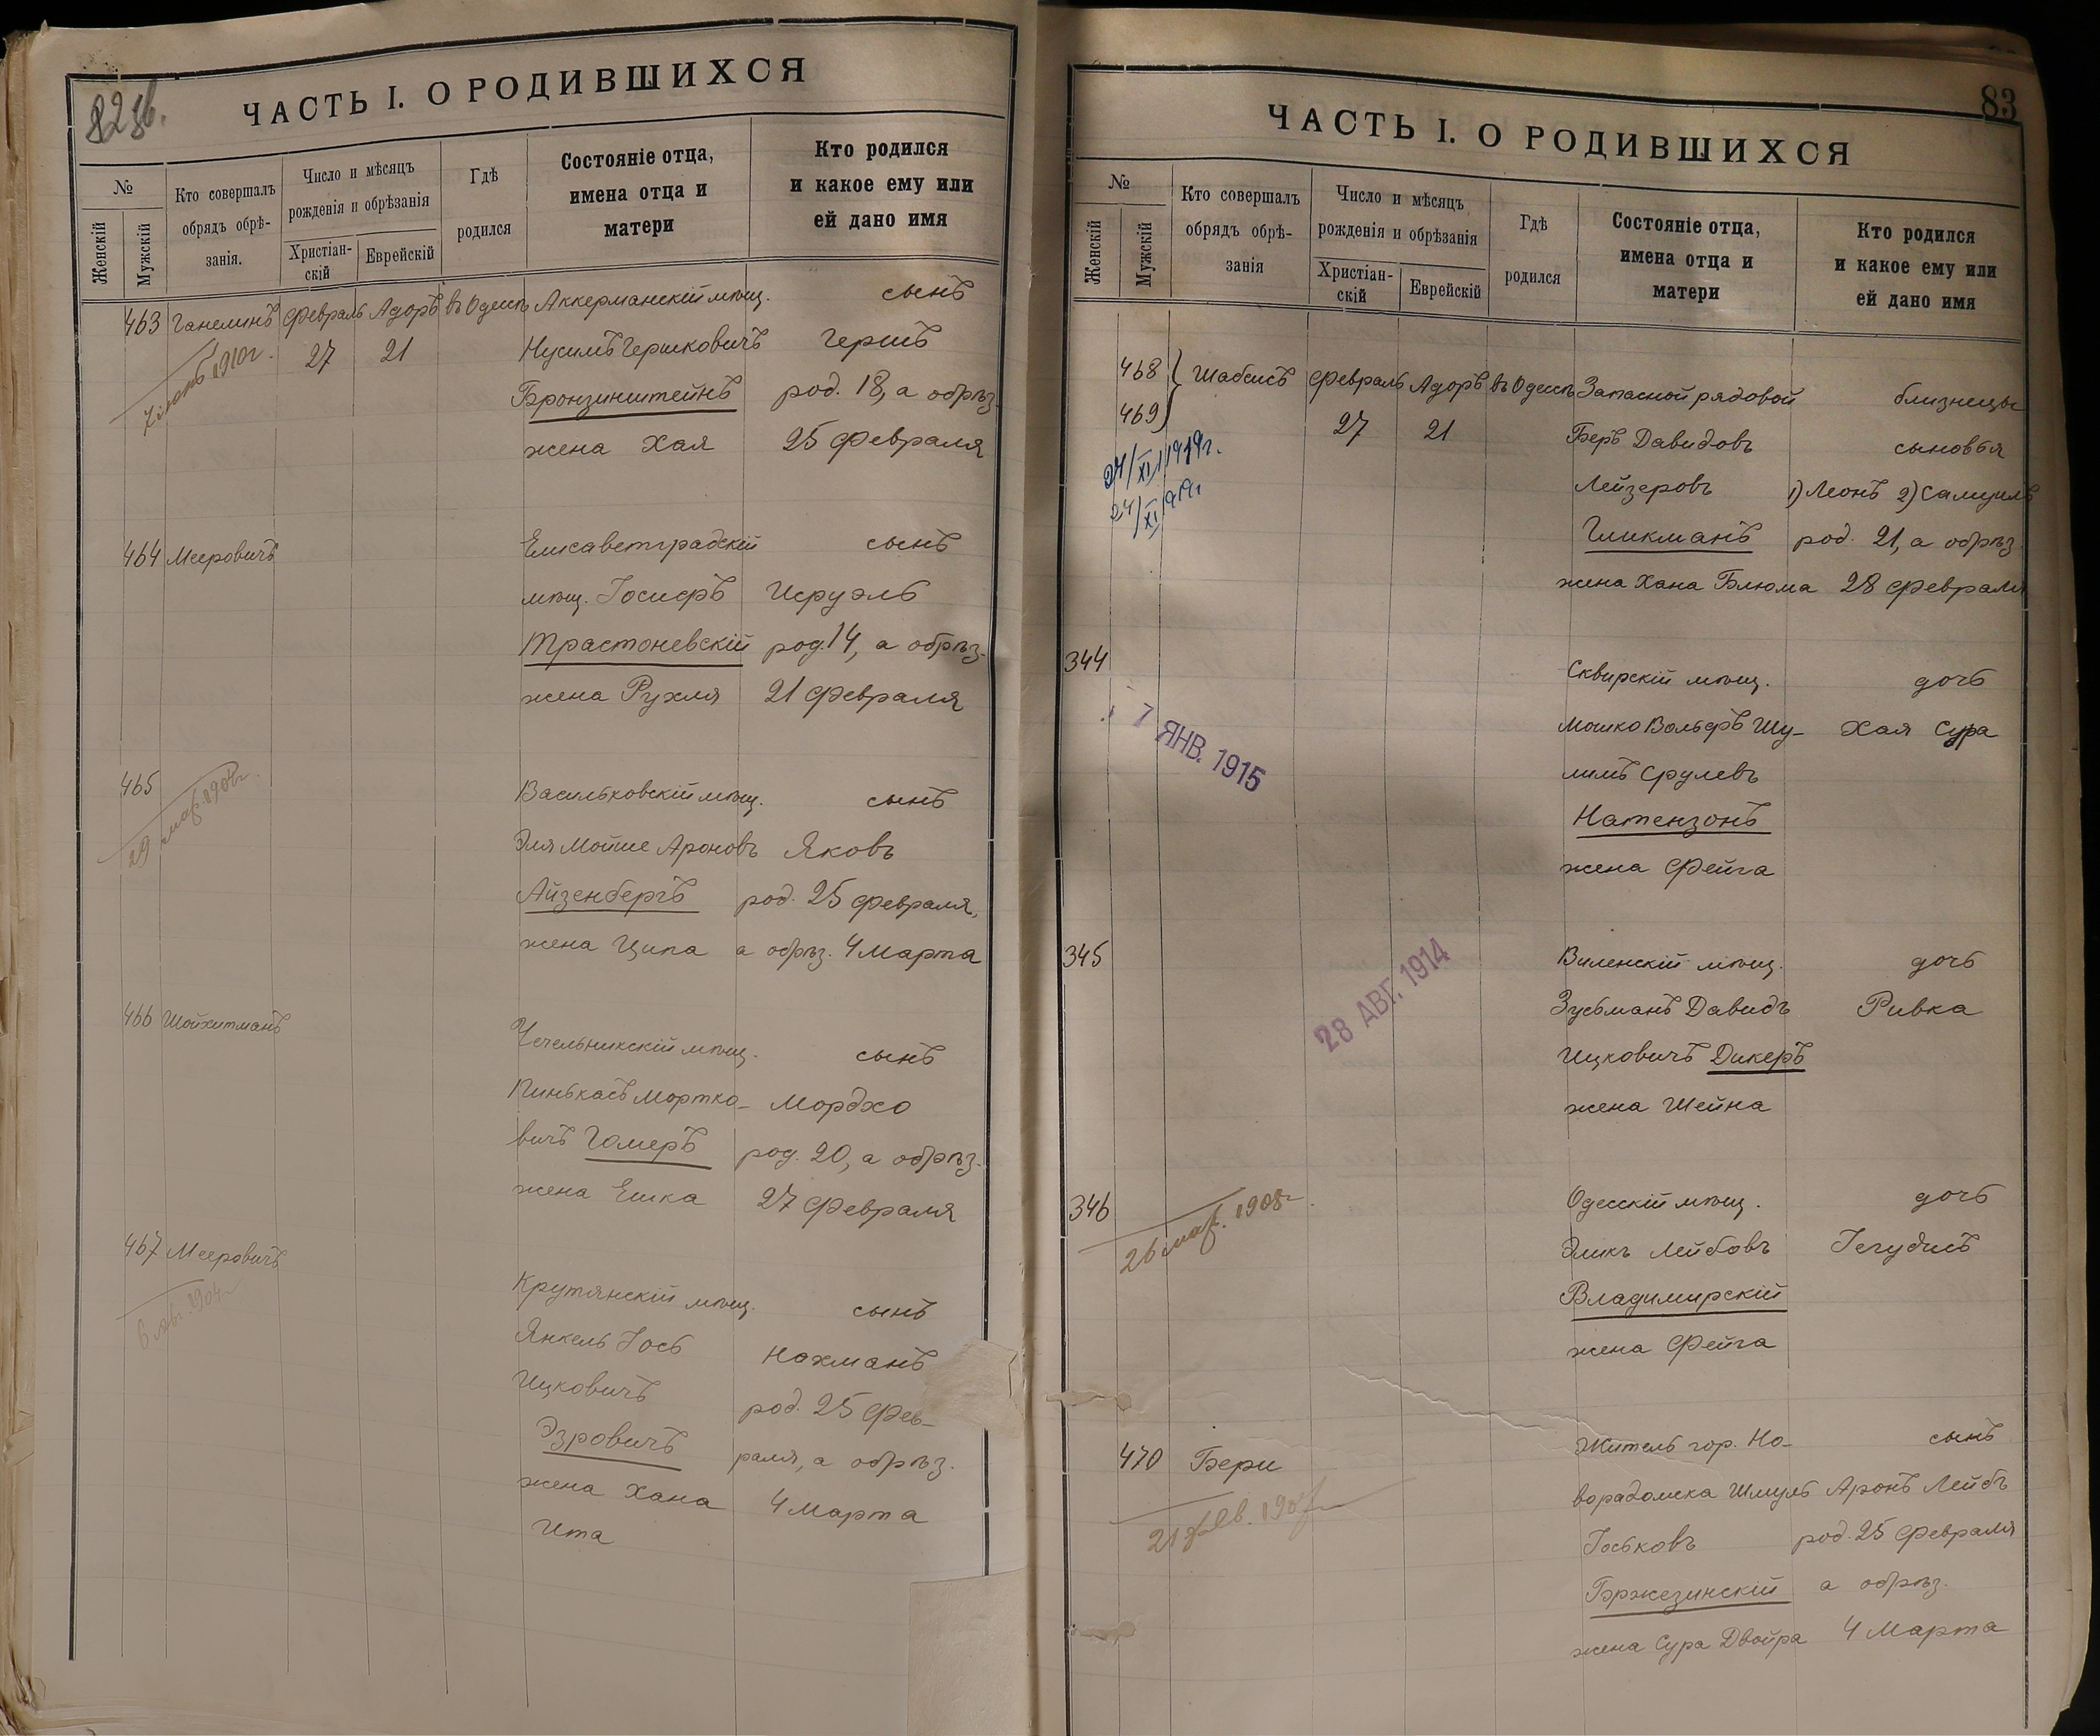 82 об.
ЧАСТЬ I. О РОДИВШИХСЯ
№
Женскій
Мужскій
Кто совершалъ
обрядъ обрѣ-
занія.
Число и мѣсяцъ
рожденія и обрѣзанія
Христіан-
скій
Еврейскій
Гдѣ
родился
Состояніе отца,
имена отца и
матери
Кто родился
и какое ему или
ей дано имя
463 Ганелинъ Февраль Адоръ въ Одессѣ Аккерманскій мѣщ. сынъ
27 21 Нусимъ Гершковичъ Гершъ
1910г.
Бронзинштейнъ род. 18, а обрѣз.
жена Хая 25 Февраля
464 Мееровичъ Елисаветградскій сынъ
мѣщ. Іосифъ Исруэль
Трастоневскій род. 14, а обрѣз.
жена Рухля 21 Февраля
465 Васильковскій мѣщ. сынъ
29 мар.
Эля Мойше Ароновъ Яковъ
Айзенбергъ род. 25 Февраля,
жена Ципа а обрѣз. 4 Марта
466 Шойхитманъ Чечельникскій мѣщ. сынъ
Пинькасъ Мортко- Мордхо
вичъ Гомеръ род. 20, а обрѣз.
жена Ешка 27 Февраля
467 Мееровичъ Крутянскій мѣщ. сынъ
6 1904г
Янкель Іось Нахманъ
Ицковичъ род. 25 Фев-
Эзровичъ раля, а обрѣз.
жена Хана 4 Марта
Ита
83
ЧАСТЬ I. О РОДИВШИХСЯ
№
Женскій
Мужскій
Кто совершалъ
обрядъ обрѣ-
занія
Число и мѣсяцъ
рожденія и обрѣзанія
Христіан-
скій
Еврейскій
Гдѣ
родился
Состояніе отца,
имена отца и
матери
Кто родился
и какое ему или
ей дано имя
468 Шабсисъ Февраль Адоръ въ Одессѣ Запасной рядовой близнецы
469 27 21 Беръ Давидовъ сыновья
24/XI 1919г.
24/XI 1919г
Лейзеровъ 1) Леонъ 2) Самуилъ
Гликманъ род. 21, а обрѣз.
жена Хана Блюма 28 Февраля
344 Сквирскій мѣщ. дочь
7 ЯНВ. 1915
Мошко Вольфъ Шу- Хая Сура
лимъ Срулевъ
Натензонъ
жена Фейга
345 Виленскій мѣщ. дочь
28 АВГ. 1914
Зусьманъ Давидъ Ривка
Ицковичъ Дикеръ
жена Шейна
346 Одесскій мѣщ. дочь
26 мар. 1908г
Эликъ Лейбовъ Іегудисъ
Владимирскій
жена Фейга
470 Бери Житель гор. Но- сынъ
ворадомска Шмуль Аронъ Лейбъ
Іоськовъ род. 25 Февраля
Бржезинскій а обрѣз.
жена Сура Двойра 4 Марта